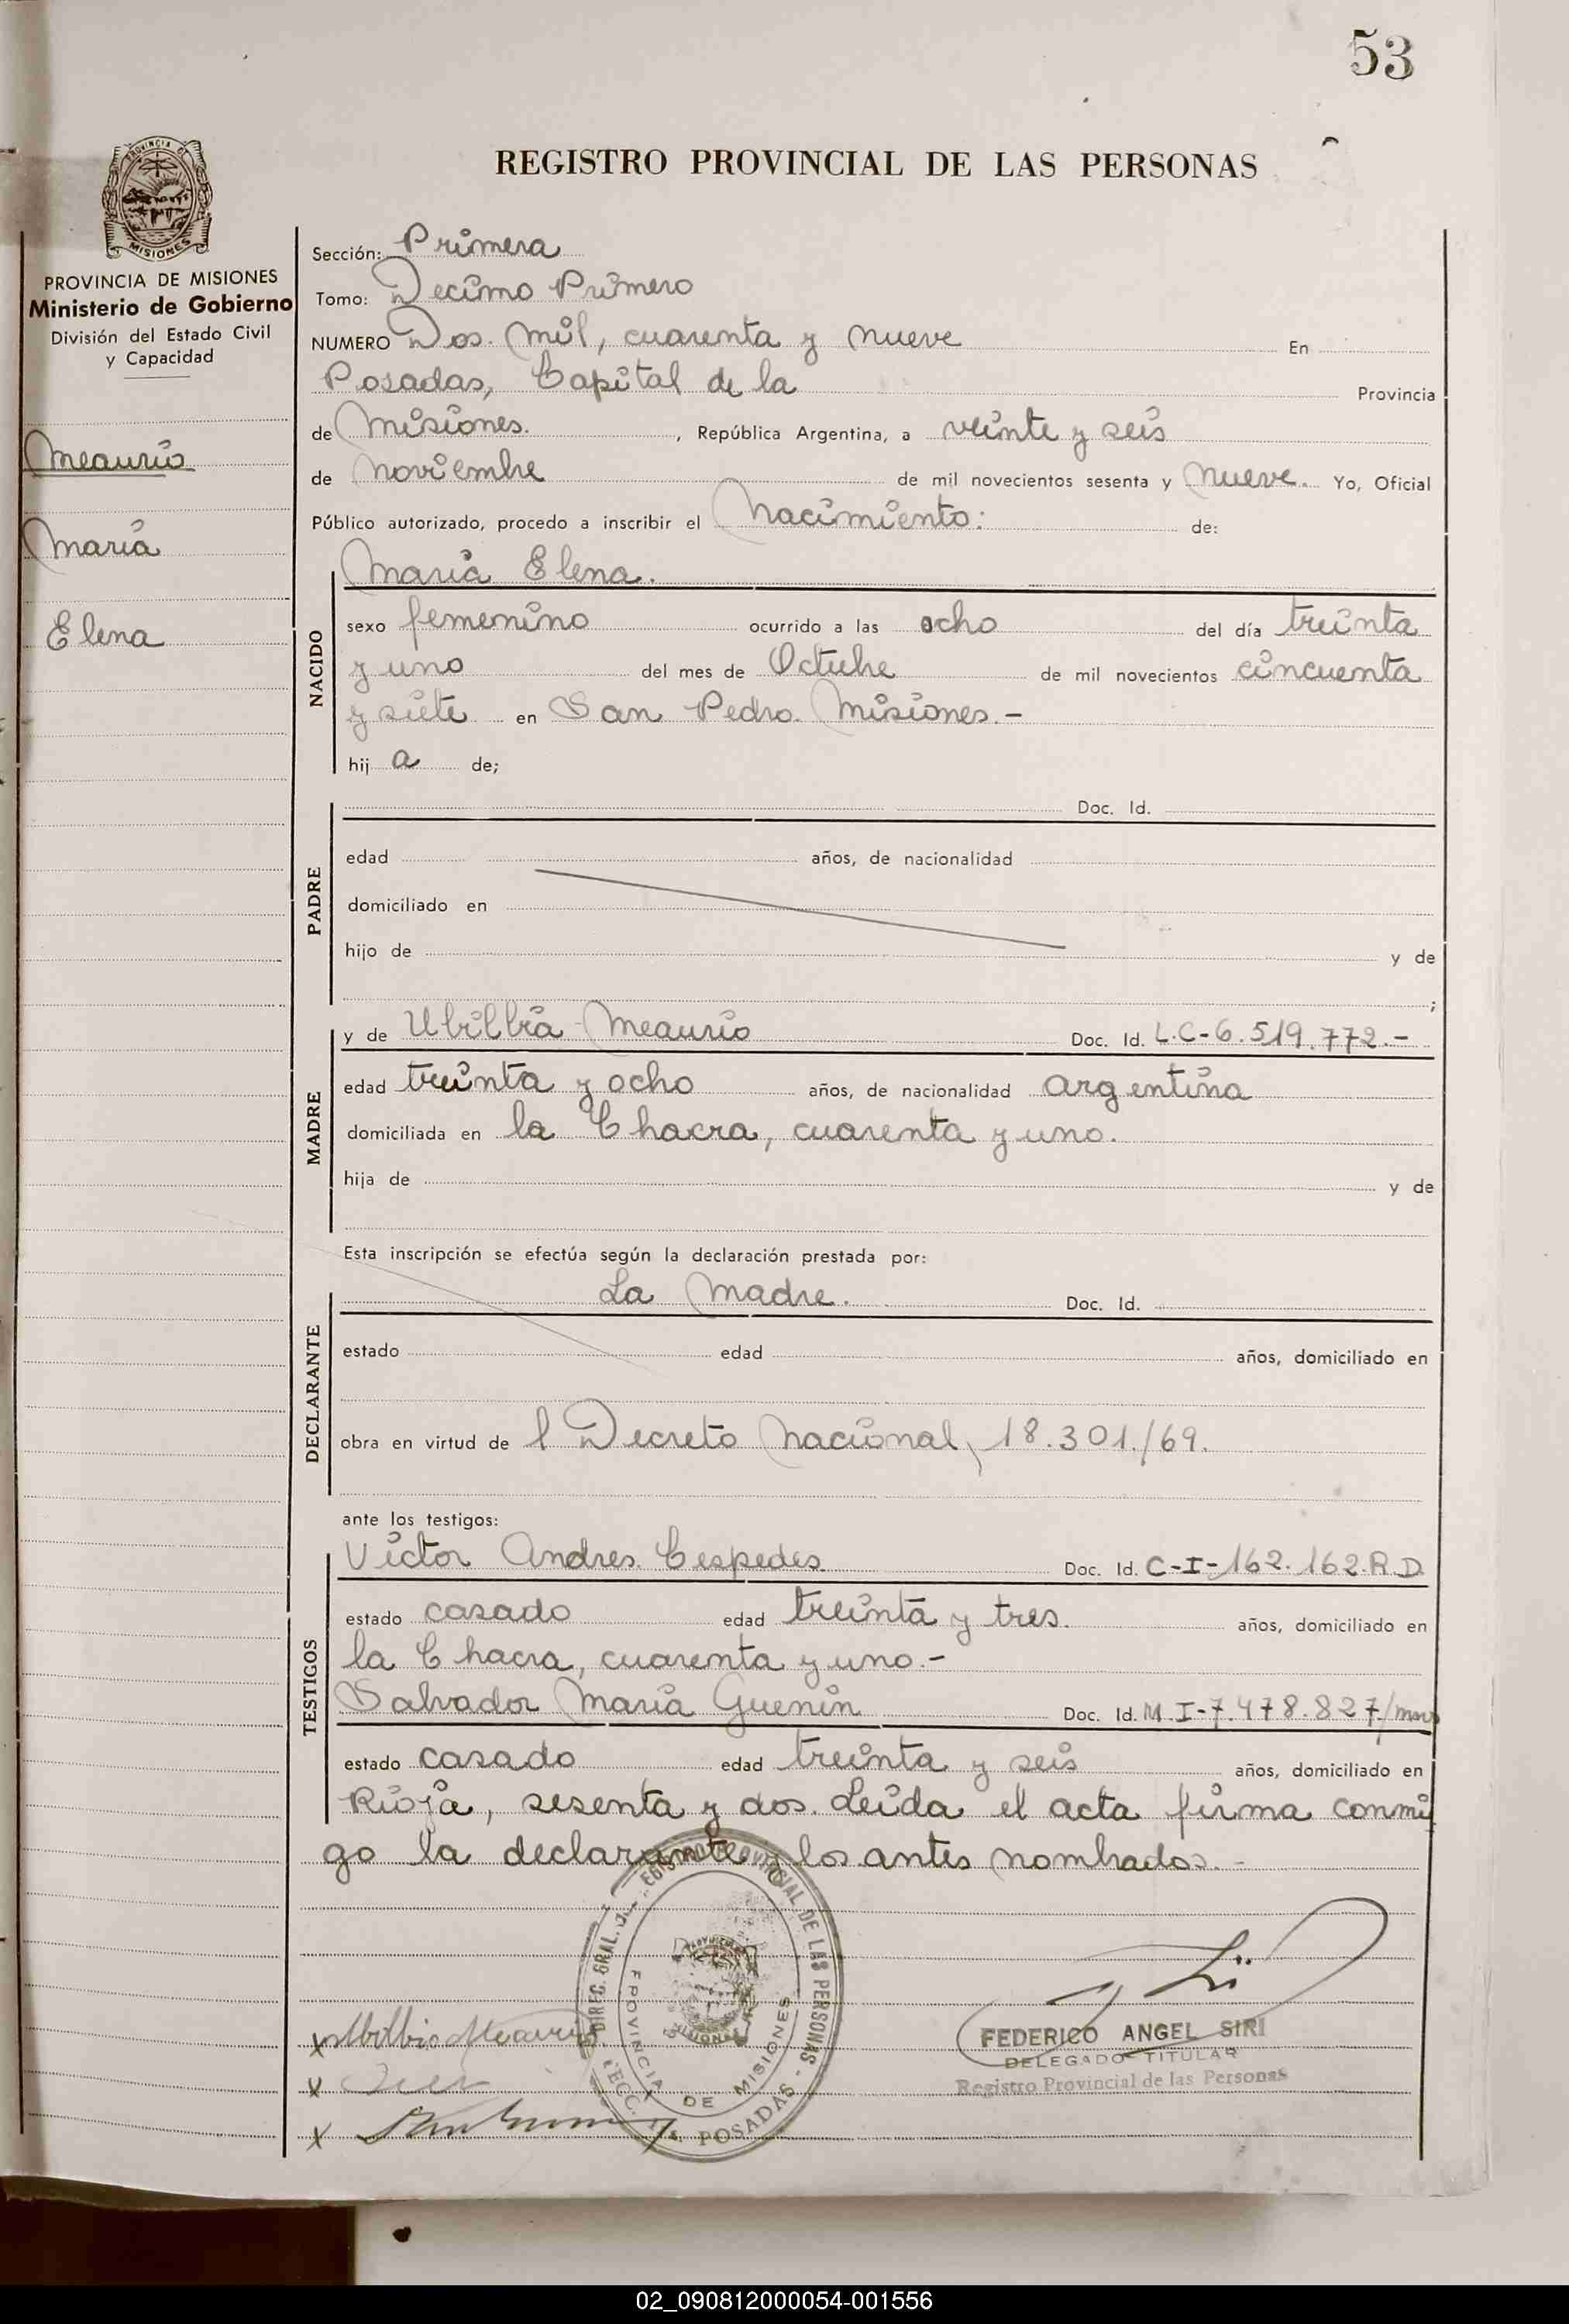 53
REGISTRO PROVINCIAL DE LAS PERSONAS
PROVINCIA DE
MISIONES
PROVINCIA DE MISIONES
Ministerio de Gobierno
División del Estado Civil
y Capacidad
Meaurio
Maria
Elena
Sección: Primera
Tomo: Decimo Primero
NUMERO Dos. Mil, cuarenta y nueve En
Posadas, Capital de la Provincia
de Misiones. , República Argentina, a veinte y seis
de noviembre de mil novecientos sesenta y nueve. Yo, Oficial
Público autorizado, procedo a inscribir el Nacimiento: de:
Maria Elena.
NACIDO
sexo femenino ocurrido a las ocho del día treinta
y uno del mes de Octubre de mil novecientos cincuenta
y siete en San Pedro. Misiones.-
hij a de;
PADRE
Doc. Id.
edad años, de nacionalidad
domiciliado en
hijo de y de
;
MADRE
y de Ubilbia Meaurio Doc. Id. L.C-6.519.772.-
edad treinta y ocho años, de nacionalidad argentina
domiciliada en la Chacra, cuarenta y uno.
hija de y de
Esta inscripción se efectúa según la declaración prestada por:
DECLARANTE
La Madre. Doc. Id.
estado edad años, domiciliado en
obra en virtud de l Decreto Nacional, 18.301./69.
ante los testigos:
TESTIGOS
Victor Andres. Cespedes. Doc. Id. C-I-162.162.R.D
estado casado edad treinta y tres. años, domiciliado en
la Chacra, cuarenta y uno.-
Salvador Maria Guenin Doc. Id. M.I-7.478.827/
estado casado edad treinta y seis años, domiciliado en
Rioja, sesenta y dos. Leida el acta firma conmi
go la declarante y los antes nombrados.-
REGISTRO PROVINCIAL DE LAS PERSONAS - POSADAS
DIREC. GRAL.
PROVINCIA DE MISIONES
x Ubilbia Meaurio
x
x
FEDERICO ANGEL SIRI
DELEGADO TITULAR
Registro Provincial de las Personas
02_090812000054-001556